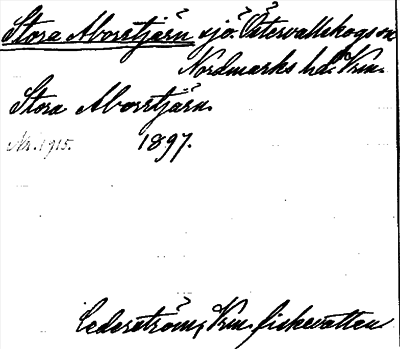 Stora Aborrtjärn sjö. Östervallskogs sn
Nordmarks hd. Vrm.
Stora Aborrtjärn.
Nr. 1915. 1897.
Cederström, Vrm. fiskevatten